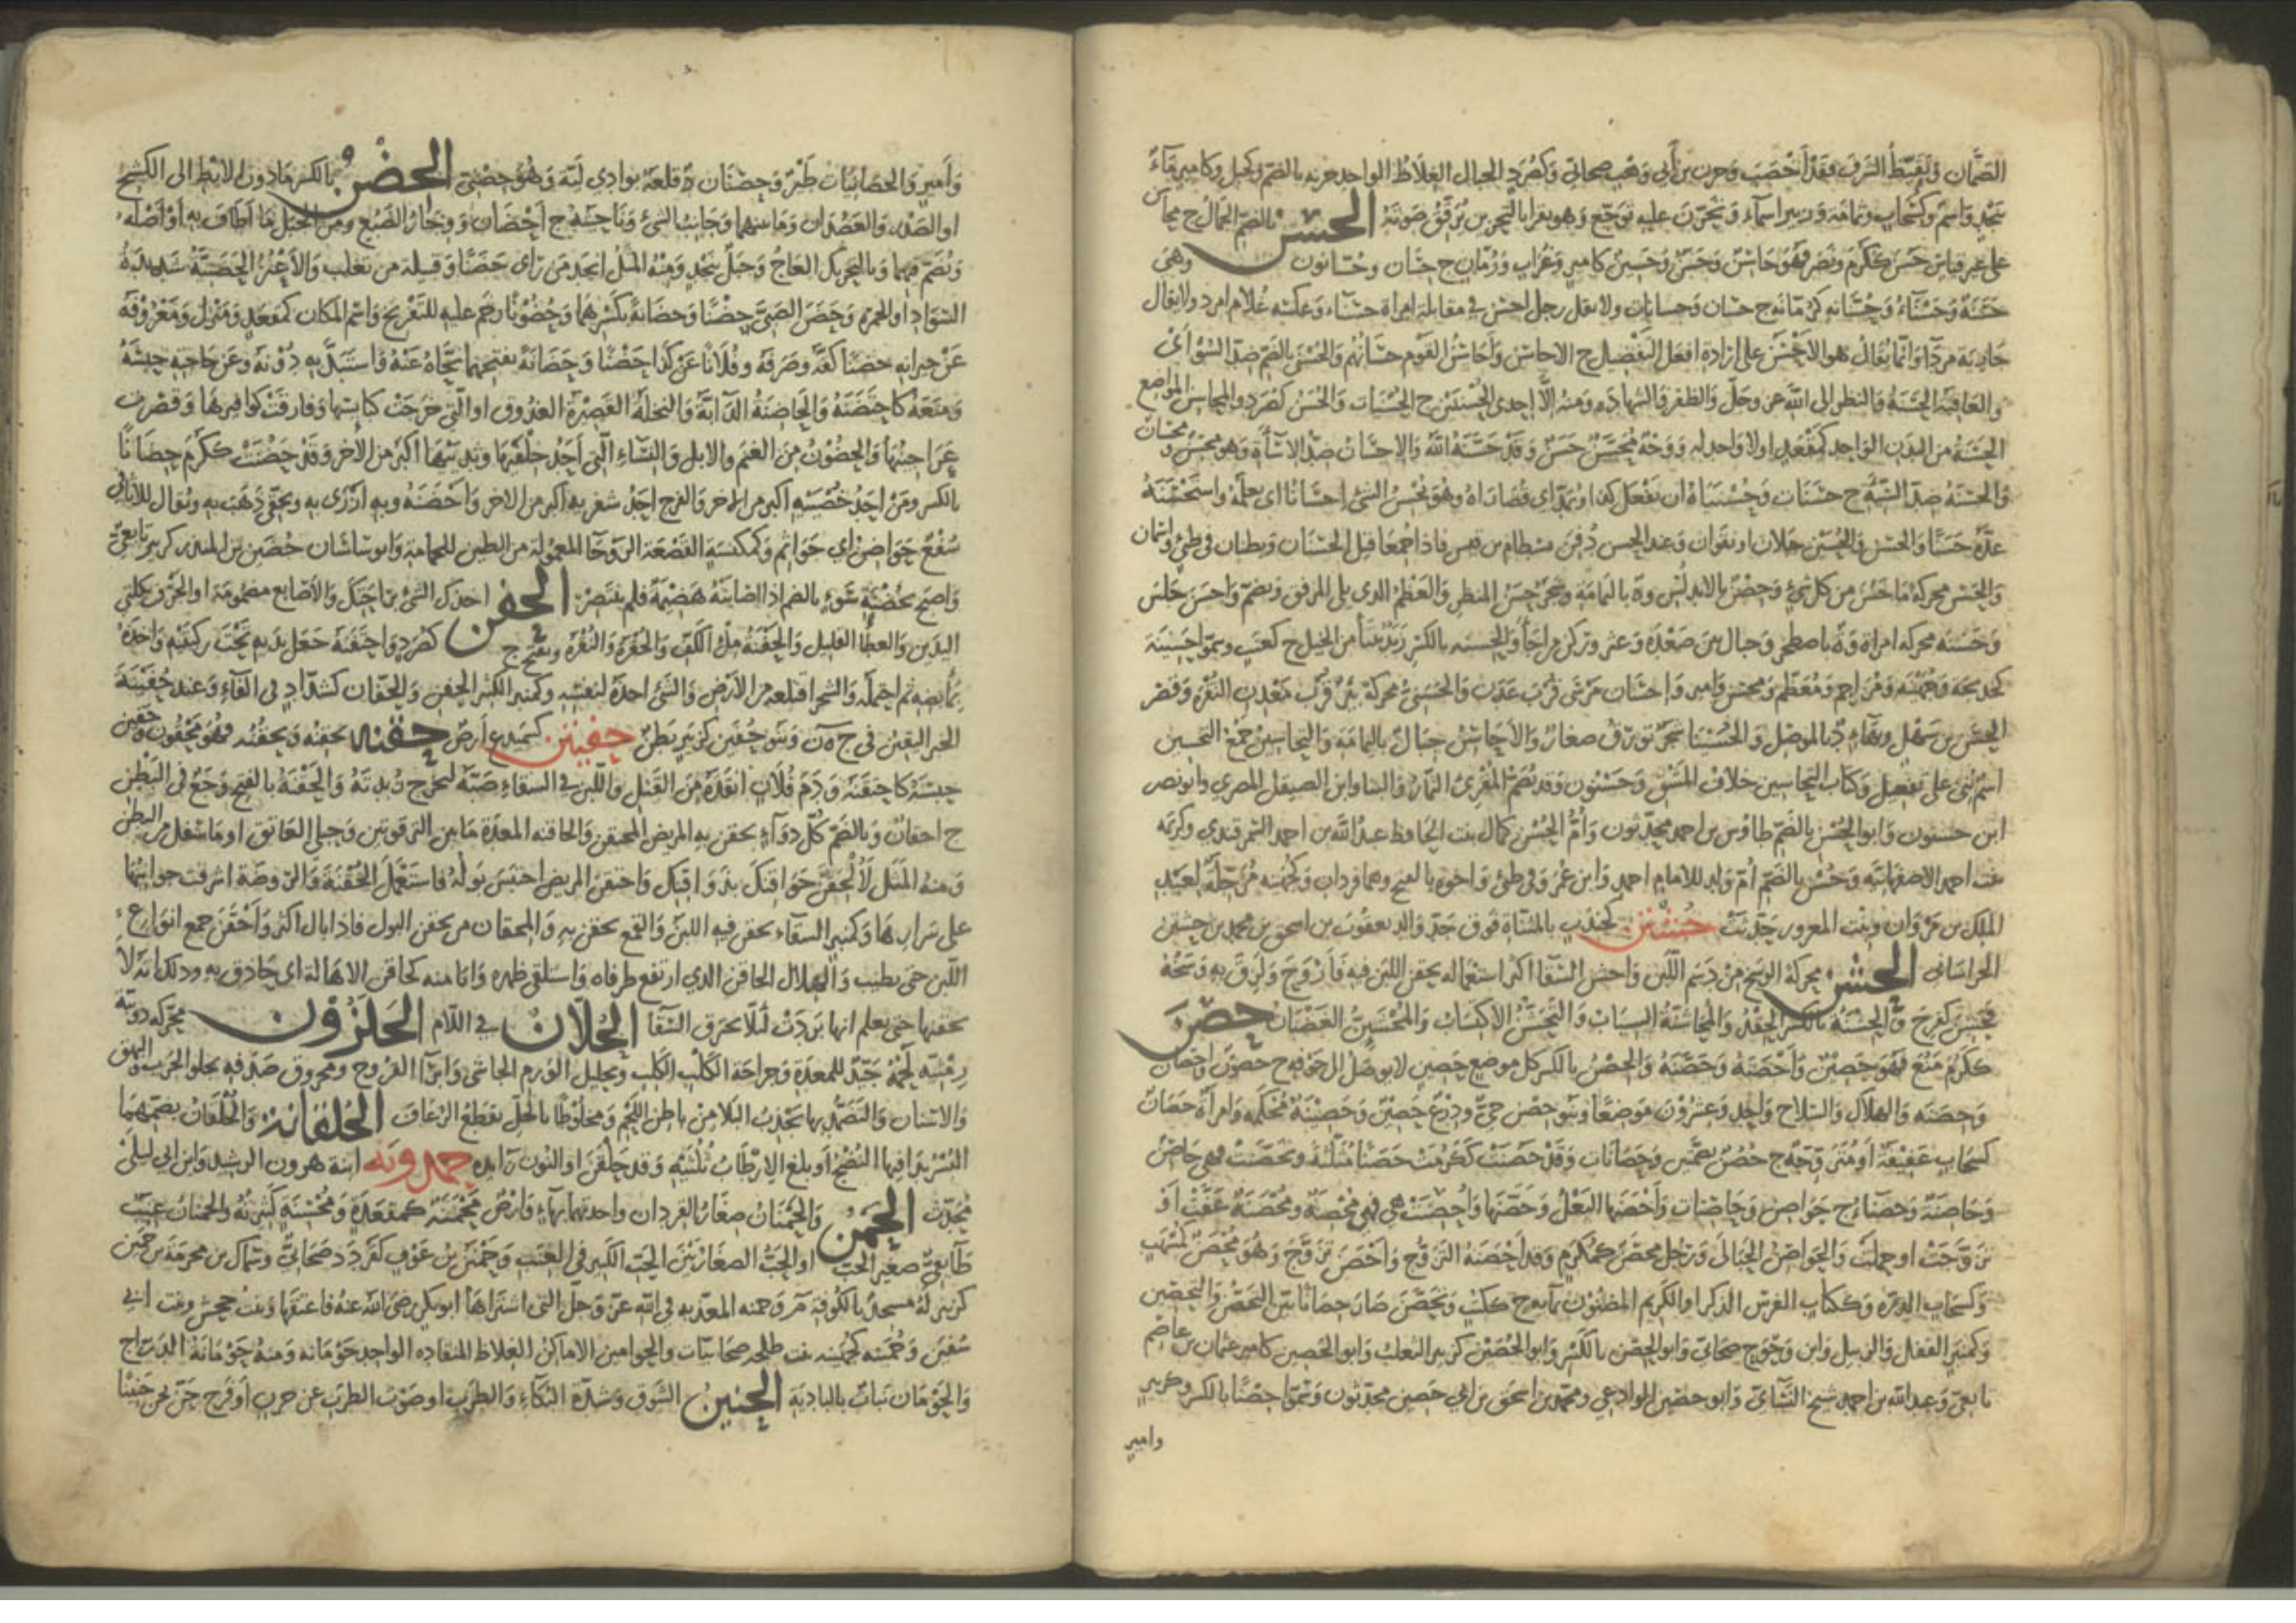 الصَّمَّان وتَقَيَّظَ الشَّرَفَ فقَدْ أَخْصَبَ وحزن بن أبي وَهْب صحابيّ وكصُرَدٍ الجبال الغِلَاظُ الواحد حزنه بالضم وكجبل وكامير ماءٌ
بنَجْدٍ واسم وكسَحاب وثمامة وزبير أسماء وتحزّن عليه توجّع وهو يقرا بالتحزين يُرَقّق صَوتَهُ الحُسْنُ بالضم الجَمَالُ ج محاسن
على غير قياس حَسُنَ ككَرُم ونَصَر فهو حاسن وحَسَن وحَسِين كأمير وغُراب ورُمّان ج حسان وحُسّانون وهي
حَسَنَة وحَسْنَاءُ وحُسّانه كرمّانه ج حسان وحسانات ولا تقل رجل احسن في مقابلة امراة حسناء وعكسه غلام امرد ولا يقال
جارية مرداء وانما يقال هو الأحْسَن على ارادة افعل التفضيل ج الاحاسن وأحاسن القوم حسانهم والحسنى بالضم ضد السّوأى
والعاقبة الحسنة والنظر الى الله عز وجل والظفر والشهاده ومنه إلّا إحدى الحُسْنَيَيْن ج الحُسْنَيات والحُسَن كصُرَد والمحاسن المواضع
الحَسَنَة من البدن الواحد كمقعد او لا واحد له ووجه مُحَسَّن حَسَن وقد حَسَّنَه الله والاحسان ضد الاساءة وهو محسن ومحسان
والحسنة ضد السّيّئة ج حسنات وحُسَيْنَاهُ ان يفعل كذا ويُمَدّ اي قُصاراه وهو يُحسن الشيء إحسانا اي يعلمه واستحسنه
عدّه حَسَنا والحسن والحُسَيْن جبلان او نقوان وعند الحسن دُفن بسطام بن قيس فاذا جُمعا قيل الحَسَنان وبطنان في طيّئ واسمان
والحسن محركة ما حَسُن من كل شيء وحِصْن بالاندلس وة باليمامة وشجر حَسَن المنظر والعَظْم الذي يلي المرفق ويضم واحسن جلس
وحَسَنة محركة امراة وة باصطخر وجبال بين صَعْدة وعثر وركن من اجأ والحِسْنه بالكسر رَيْد ينتأ من الجبل ج كعنب وسمّوا حسينة
الحسن بن سهل وبهاء ة بالموصل والحُسَيْنا شجر بورق صغار والأحاسن جبال باليمامة والتحاسين جمع التحسين
اسم بُني على تفعيل وكتاب التحاسين خلاف المشق وحَسْنُون وقد يضم المُقرئ التمّار والبنا وابن الصيقل المصري وابو نصر
ابن حسنون وابو الحُسْن بالضم طاوس بن احمد محدثون وأم الحسن كمال بنت الحافظ عبد الله بن احمد السمرقندي وكريمه
بنت احمد الاصفهانيه وحُسْن بالضم أم ولد للامام احمد وابن عمرو في طيئ واخوه بالفتح وهما فردان وكجهينه مرجلة لعبد
الملك بن مروان وبنت المعرور حَدّثت حُسْتُن كجندب بالمثناة فوق جد والد يعقوب بن اسحق بن محمد بن حستن
الخراساني الحَشَن محركة الوسخ من دسم اللبن واحشن السقا اكثر استعماله بحقن اللبن فيه فأروح ولزق به وسخه
فحشن كفرح والحشنه بالكسر الحقد والمحاشنة السباب والتحشّن الاكتساب والمُحْشَئِنّ الغَضْبان حَصُنَ
ككَرُمَ مَنُع فهو حصين وأحْصَنَه وحصّنه والحصن بالكسر كل موضع حصين لا يوصل الى جوفه ج حصون واحصان
وحصنه والهلال والسلاح واحد وعشرون موضعا وبنو حصن حيّ ودرع حصين وحصينة محكمه وامرأة حصان
كسحاب عفيفة أو متزوّجة ج حُصُن بضمتين وحصانات وقد حصنت ككرمت حصنا مثلثة وتحصنت فهي حاصن
وحاصنة وحصناء ج حواصن وحاصنات وأحصنها البعل وحصّنها وأحصنت هي فهي محصنة ومحصنة عفّت أو
تزوجت او حملت والحواصن الحبالى ورجل محصن كمكرم وقد أحصنه التزوج وأحصن تزوّج وهو محصن كمسهب
وكسحاب الدرة وككتاب الفرس الذكر او الكريم المضنون بمآئه ج ككتب وتحصن صار حصانا بيّن التحصن والتحصين
وكمنبر القفل والزبيل وابن وحوح صحابي وابو الحصن بالكسر وابو الحُصَيْن كزبير الثعلب وابو الحَصين كامير عثمان بن عاصم
تابعي وعبد الله بن احمد شيخ النسآئي وابو حصين الوادعي ومحمد بن اسحق بن ابي حصين محدثون وسمّوا حصنا بالكسر وكزبير
وامير
وأمير والحصانيات طير وحصنان ة قلعة بوادي لية وهو حصني الحِضْنُ بالكسر مادون الابط الى الكشح
او الصدر والعضدان وما بينهما وجانب الشيء وناحيته ج احضان ووجار الضبع ومن الجبل ما اطاف به او أصله
ويُضمّ فيهما وبالتحريك العاج وجبل بنجد ومنه المثل انجد من رأى حضنا وقبيلة من تغلب والأعنز الحضنية شديدة
السواد او الحمرة وحضن الصبي حضنا وحضانة بكسرهما وحضونا رخم عليه للتفريخ واسم المكان كمقعد ومنزل ومعروفه
عن جيرانه حضنا كفّه وصرفه وفلانا عن كذا حضنا وحضانة بفتحهما نحّاه عنه واستبدّ به دونه وعن حاجته حبسه
ومنعه كاحتضنه والحاضنة الداية والنخلة القصيرة العذوق او التي خرجت كبائسها وفارقت كوافيرها وقصرت
عراجينها والحضون من الغنم والابل والنساء التي أحد خلفيها وثدييها أكبر من الاخر وقد حضنت ككرم حضانا
بالكسر ومن أحد خصييه أكبر من الاخر والفرج احد شفريه أكبر من الاخر واحضنه وبه ازرى به وبحقي ذهب به ويقال للأثافي
سُفْع حواضن اي جواثم وكمكنسة القصعة الروحا المعمولة من الطين للحمامة وابو ساسان حضين بن المنذر كزبير تابعي
واصبح بحضنة سوء بالضم اذا اصابته هضيمة فلم ينتصر الحَفْن اخذك الشيء براحتك والأصابع مضمومة او الجرف بكلتي
اليدين والعطاء القليل والحفنة ملء الكف والحفرة والنقرة ويفتح ج كصرد واحتفنه جعل يديه تحت ركبتيه واخذه
بمأبضه ثم احتمله والشجر اقتلعه من الأرض والشيء اخذه لنفسه وكمنبر الكثير الحفن والحفّان كشدّاد في الفاء وعند حُفَيْنَة
الخبر اليقين في ج ه ن وبنو حُفَيْن كزبير بطن حَفَيْتَن كسميدع أرض حَقَنَه يحقنه ويحقنه فهو محقون وحقين
حبسه كاحتقنه ودم فلان انقذه من القتل واللبن في السقاء صبه ليخرج زبدته والحقنة بالفتح وجع في البطن
ج احقان وبالضم كل دوآء يحقن به المريض المحتقن والحاقنه المعدة ما بين الترقوتين وحبلي العاتق او ما سفل من البطن
ومنه المثل لألحقنّ حواقنك بذواقنك واحتقن المريض احتبس بوله فاستعمل الحقنة والروضة اشرفت جوانبها
على سرارها وكمنبر السقاء يحقن فيه اللبن والقمع يحقن به والمحقان من يحقن البول فاذا بال اكثر وأحقن جمع انواع
اللبن حتى يطيب والهلال الحاقن الذي ارتفع طرفاه واستلقى ظهره وانا منه كحاقن الاهالة اي حاذق به وذلك انه لا
يحقنها حتى يعلم انها بردت لئلا يحترق السقا الحُلّان في اللام الحَلَزُون محركه دويّة
رمثيّه لحمه جيّد للمعدة وجراحة الكلب الكلب وتحليل الورم الجاسي وابرآء القروح ومحروق صدفه يجلو الجرب والبهق
والاسنان والتضمّد بها يجذب السلا من باطن اللحم ومخلوطا بالخل يقطع الرعاف الحُلْقانة والحلقان بضمهما
البسر بدا فيها النضج او بلغ الارطاب ثلثيه وقد حلقن او النون زايده حمدونه ابنة هرون الرشيد وابن ابي ليلى
محدّث الحَمْن والحمنان صغار القردان واحدتهما بهاء وأرض محمنة كمقعدة ومحسنة كثيرته والحمنان عنب
طائفيّ صغير الحبّ او الحب الصغار بين الحب الكبير في العنب وحمنن بن عوف كقردد صحابي وسماك بن مخرمة بن حمين
كزبير له مسجد بالكوفة م وحمنه المعذبه في الله عز وجل التي اشتراها ابوبكر رضي الله عنه فاعتقها وبنت جحش وبنت ابي
سفين وحُمَيْنه كجهينه بنت طلحه صحابيات والحوامين الاماكن الغلاظ المنقاده الواحد حومانه ومنه حومانة الدراج
والحومان نبات بالبادية الحَنِين الشوق وشدّة البكاء والطرب او صوت الطرب عن حزن أو فرح حنّ يحن حنينا